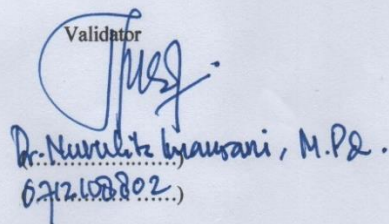 Validator
Dr. Nurulita Imansari, M.Pd.
0712108802)